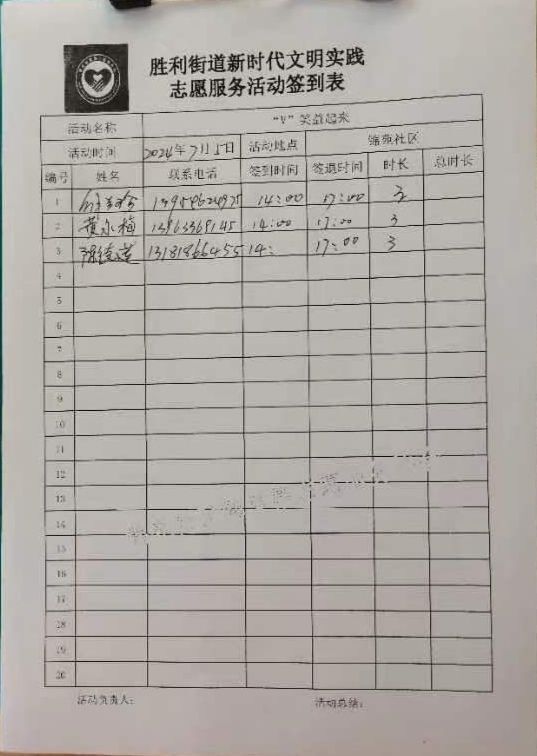 胜利街道新时代文明实践
志愿服务活动签到表
活动名称 “V”笑益起来
活动时间 2024年7月5日 活动地点 锦苑社区
编号 姓名 联系电话 签到时间 签退时间 时长 总时长
1 14:00 17:00 3
2 黄永梅 13963369145 14:00 17:00 3
3 13181866455 14: 17:00 3
4
5
6
7
8
9
10
11
12
13
14
15
16
17
18
19
20
活动负责人: 活动总结: